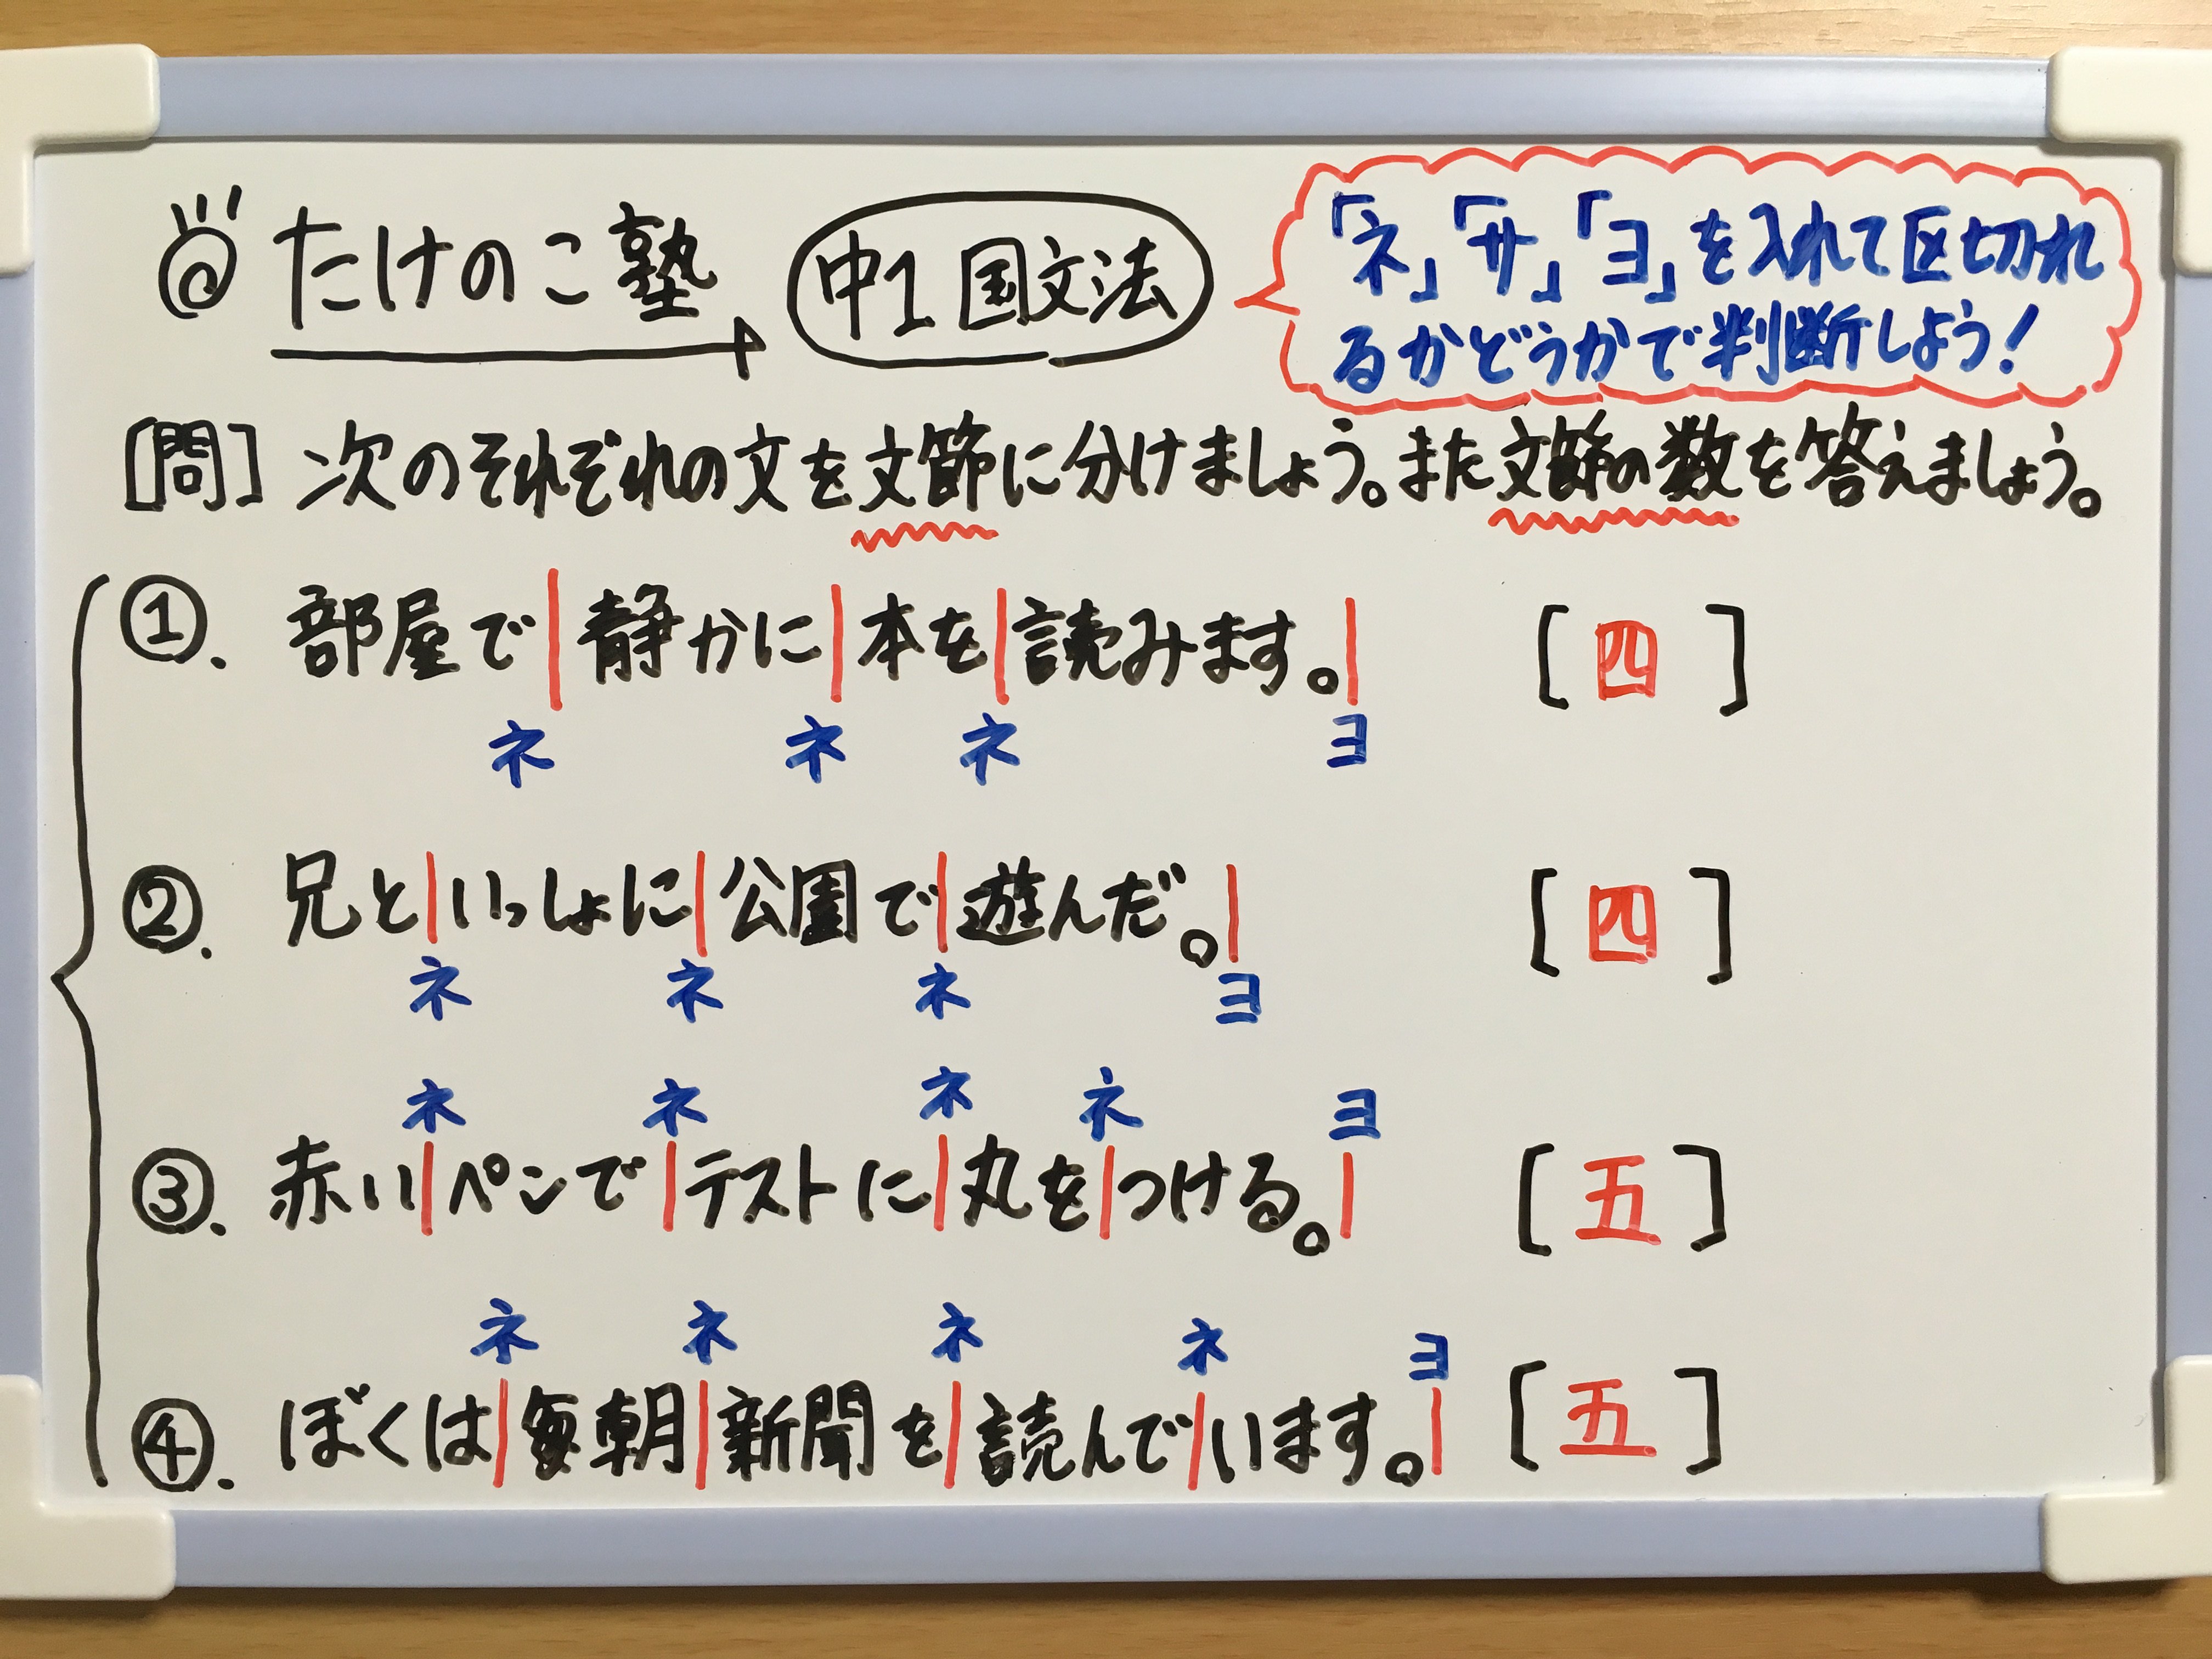 たけのこ塾
中1 国文法
「ネ」「サ」「ヨ」を入れて区切れ
るかどうかで判断しよう!
[問] 次のそれぞれの文を文節に分けましょう。また文節の数を答えましょう。
①. 部屋で|静かに|本を|読みます。| [四]
ネ ネ ネ ヨ
②. 兄と|いっしょに|公園で|遊んだ。| [四]
ネ ネ ネ ヨ
ネ ネ ネ ネ ヨ
③. 赤い|ペンで|テストに|丸を|つける。| [五]
ネ ネ ネ ネ ヨ
④. ぼくは|毎朝|新聞を|読んで|います。| [五]